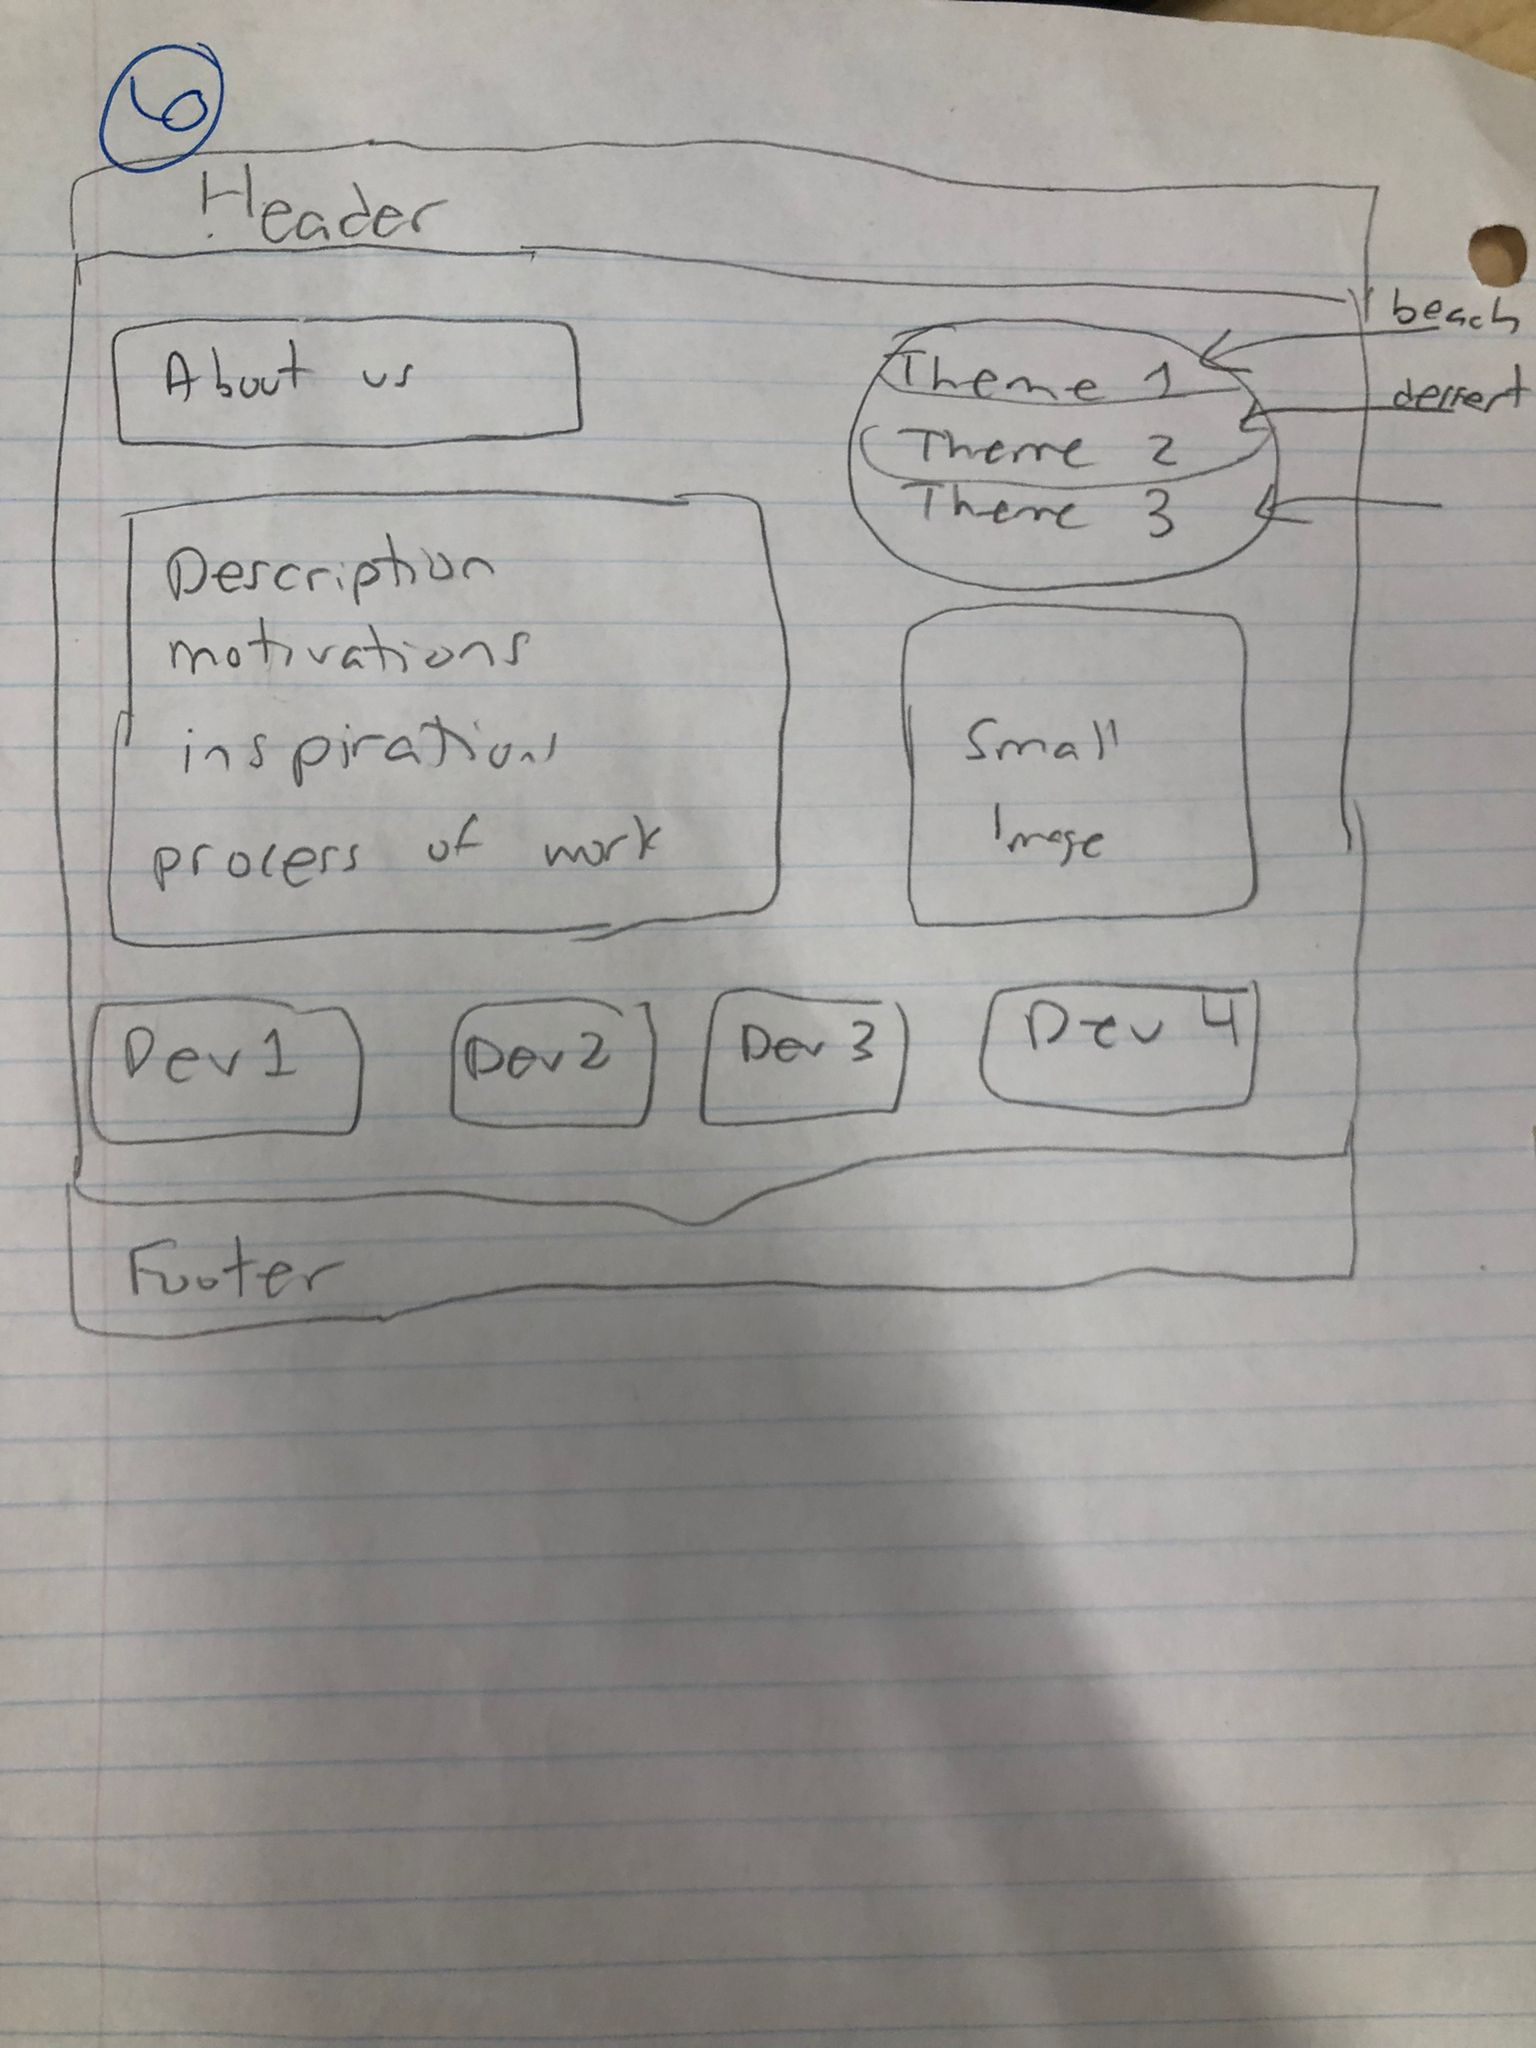 6
Header
beach
About us
Theme 1
dessert
Theme 2
Theme 3
Description
motivations
inspirations
process of work
Small
Image
Dev 1
Dev 2
Dev 3
Dev 4
Footer